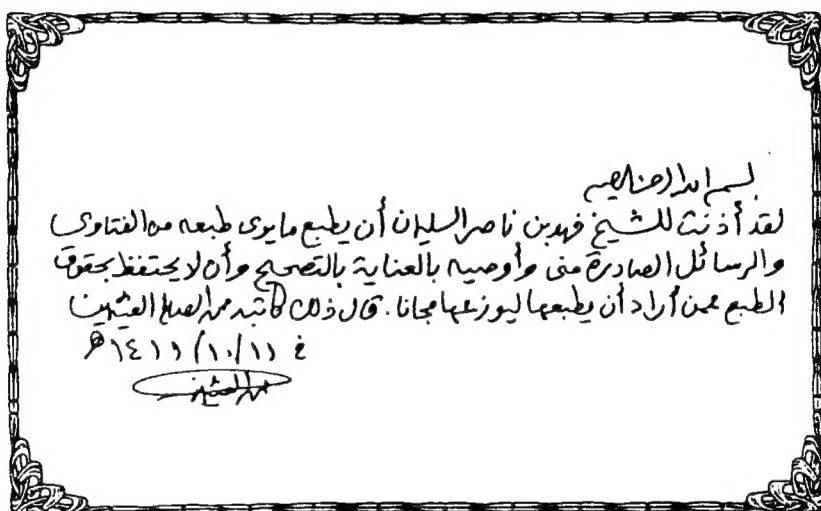 بسم الله الرحمن الرحيم
لقد أذنت للشيخ فهد بن ناصر السليمان أن يطبع ما يرى طبعه من الفتاوى
والرسائل الصادرة مني وأوصيه بالعناية بالتصحيح وأن لا يحتفظ بحقوق
الطبع عمن أراد أن يطبعها ليوزعها مجانا. قال ذلك كاتبه محمد الصالح العثيمين
في ١٤١١/١٠/١١هـ
محمد العثيمين